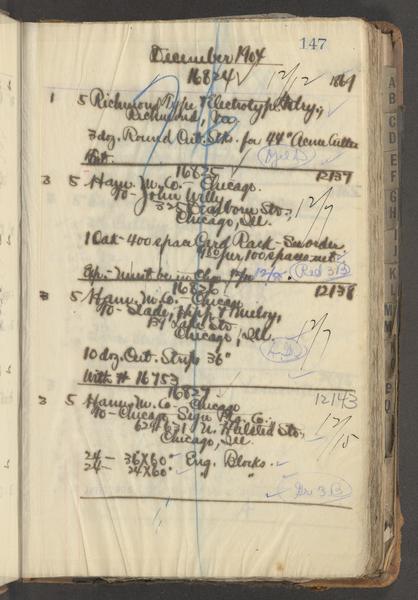 147
December 1904
16824 12/2 1869
1 5 Richmond Type & Electrotype Fdry.,
Richmond, Va.
3 doz. Round Cut. Stks. for 44" Acme Cutter
16825 12137
3 5 Ham. M. Co. - Chicago.
To - John Willy
325 Dearborn Sto.,
Chicago, Ill.
12/7
1 Oak - 400 space Card Rack - See order
per 100 spaces net
Exp. - Must be in Chgo. 12/8 Red 3B
16826 12138
3 5 Ham. M. Co. - Chicago
To - Slade, Hipp & Meloy,
139 Lake Sto.
Chicago, Ill.
12/7
10 doz. Cut. Strips 36"
With # 16753
16827 12143
3 5 Ham. M. Co. - Chicago
To - Chicago Sign Ptg. Co.
629 631 N. Halsted Sto.,
Chicago, Ill.
12/5
24 - 36X60" Eng. Blocks.
24 - 24X60" " "
3B
A
B
C
D
E
F
G
H
I
J
K
L
M